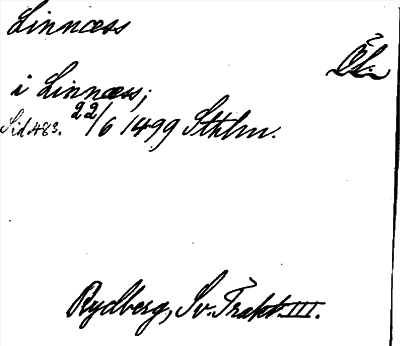 Linnæss
Öl.
i Linnæss;
Sid. 483. 22/6 1499 Sthlm.
Rydberg, Sv. Trakt. III.